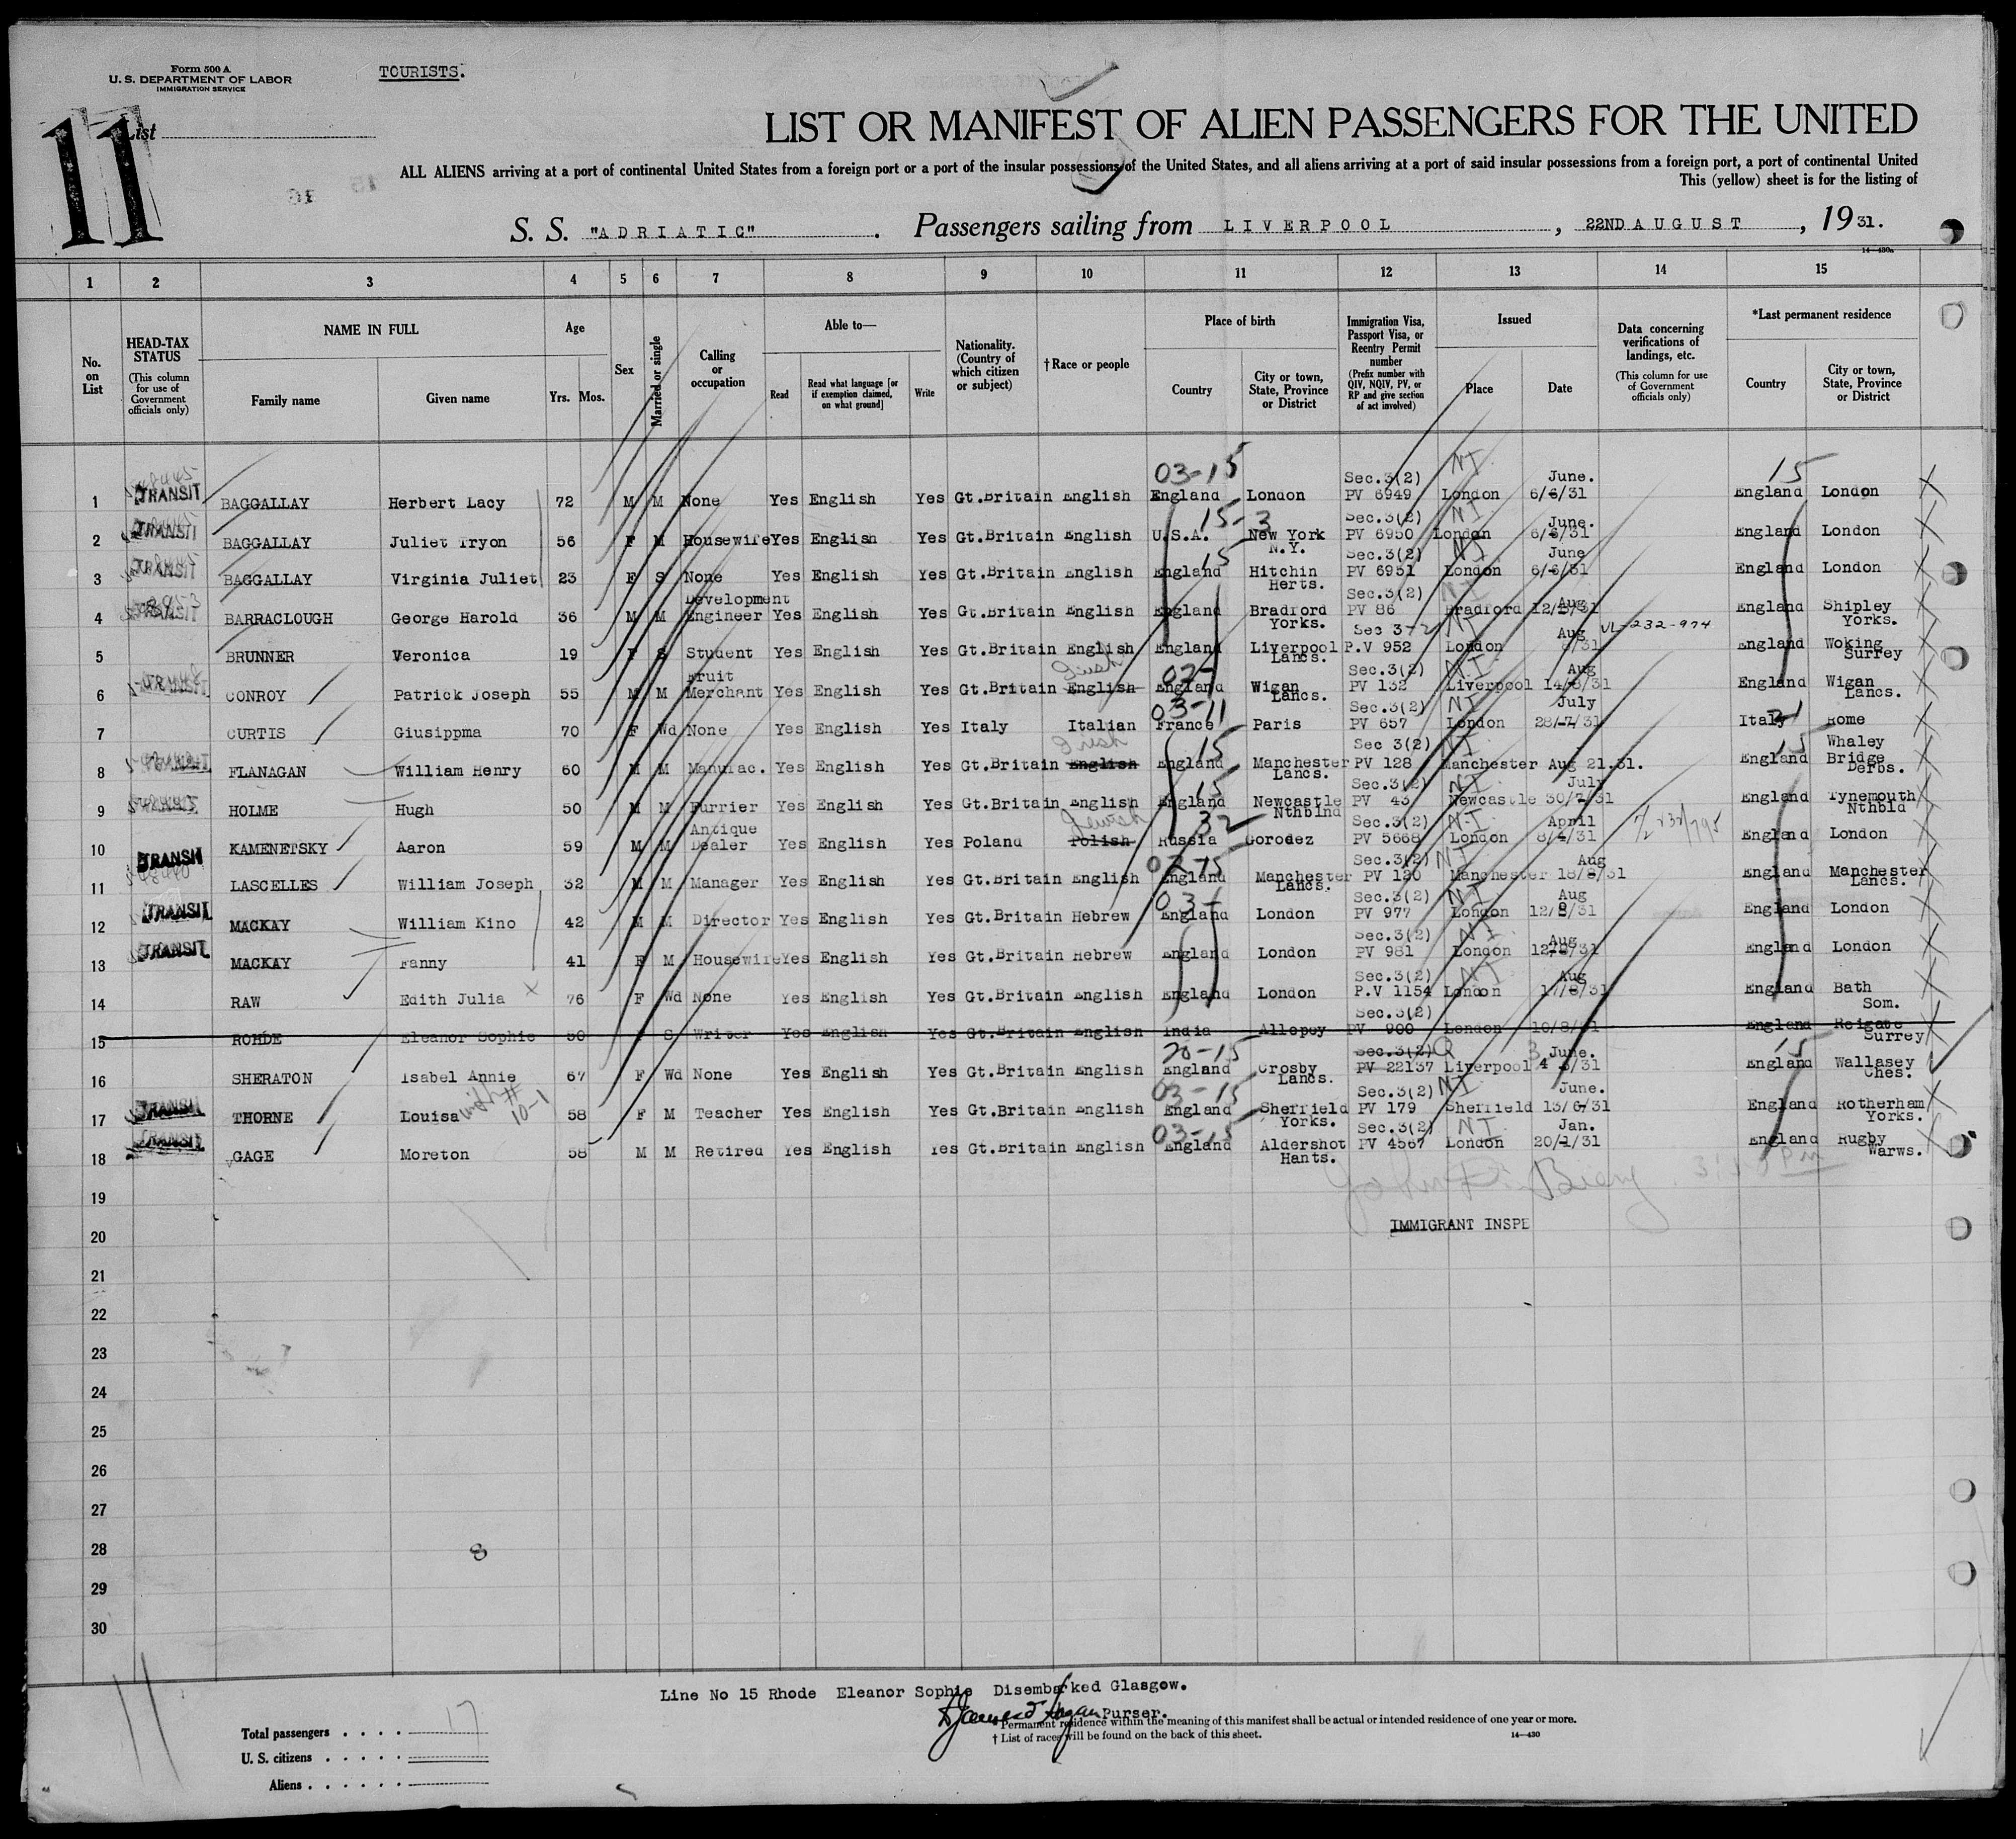 Form 500 A
U. S. DEPARTMENT OF LABOR
IMMIGRATION SERVICE
TOURISTS.
11
List
LIST OR MANIFEST OF ALIEN PASSENGERS FOR THE UNITED
ALL ALIENS arriving at a port of continental United States from a foreign port or a port of the insular possessions of the United States, and all aliens arriving at a port of said insular possessions from a foreign port, a port of continental United
This (yellow) sheet is for the listing of
S. S. "ADRIATIC" . Passengers sailing from LIVERPOOL , 22ND AUGUST , 19 31.
14—430a
1 2 3 4 5 6 7 8 9 10 11 12 13 14 15
No. on List
HEAD-TAX STATUS (This column for use of Government officials only)
NAME IN FULL Family name Given name
Age Yrs. Mos.
Sex
Married or single
Calling or occupation
Able to— Read Read what language [or if exemption claimed, on what ground] Write
Nationality. (Country of which citizen or subject)
† Race or people
Place of birth Country City or town, State, Province or District
Immigration Visa, Passport Visa, or Reentry Permit number (Prefix number with QIV, NQIV, PV, or RP and give section of act involved)
Issued Place Date
Data concerning verifications of landings, etc. (This column for use of Government officials only)
*Last permanent residence Country City or town, State, Province or District
03-15 Sec.3(2) NI June. 15
1 TRANSIT BAGGALLAY Herbert Lacy 72 M M None Yes English Yes Gt.Britain English England London PV 6949 London 6/6/31 England London X
15-3 Sec.3(2) NI June.
2 TRANSIT BAGGALLAY Juliet Tryon 56 F M Housewife Yes English Yes Gt.Britain English U.S.A. New York N.Y. PV 6950 London 6/6/31 England London X
15 Sec.3(2) NI June
3 TRANSIT BAGGALLAY Virginia Juliet 23 F S None Yes English Yes Gt.Britain English England Hitchin Herts. PV 6951 London 6/6/31 England London X
Sec.3(2) NI Aug
4 TRANSIT BARRACLOUGH George Harold 36 M M Development Engineer Yes English Yes Gt.Britain English England Bradford Yorks. PV 86 Bradford 12/8/31 England Shipley Yorks. X
Sec 3-2 NI Aug
5 BRUNNER Veronica 19 F S Student Yes English Yes Gt.Britain English England Liverpool Lancs. P.V 952 London /31 England Woking Surrey X
Irish 07- Sec.3(2) NI Aug
6 TRANSIT CONROY Patrick Joseph 55 M M Fruit Merchant Yes English Yes Gt.Britain English England Wigan Lancs. PV 132 Liverpool 14/8/31 England Wigan Lancs. X
03-11 Sec.3(2) NI July
7 CURTIS Giusippma 70 F Wd None Yes English Yes Italy Italian France Paris PV 657 London 28/7/31 Italy Rome X
Irish 15 Sec 3(2) NI 15
8 FLANAGAN William Henry 60 M M Manufac. Yes English Yes Gt.Britain English England Manchester Lancs. PV 128 Manchester Aug 21.31. England Whaley Bridge Derbs. X
15 Sec.3(2) NI July
9 HOLME Hugh 50 M M Furrier Yes English Yes Gt.Britain English England Newcastle Nthblnd PV 43 Newcastle 30/7/31 England Tynemouth Nthbld X
Jewish 32 Sec.3(2) NI April
10 KAMENETSKY Aaron 59 M M Antique Dealer Yes English Yes Poland Polish Russia Gorodez PV 5668 London 8/4/31 England London X
02-15 Sec.3(2) NI Aug
11 TRANSIT LASCELLES William Joseph 32 M M Manager Yes English Yes Gt.Britain English England Manchester Lancs. PV 120 Manchester 18/8/31 England Manchester Lancs. X
03- Sec.3(2) NI Aug
12 TRANSIT MACKAY William Kino 42 M M Director Yes English Yes Gt.Britain Hebrew England London PV 977 London 12/8/31 England London X
Sec.3(2) NI Aug
13 TRANSIT MACKAY Fanny 41 F M Housewife Yes English Yes Gt.Britain Hebrew England London PV 981 London 12/8/31 England London X
Sec.3(2) NI Aug
14 RAW Edith Julia X 76 F Wd None Yes English Yes Gt.Britain English England London P.V 1154 London 17/8/31 England Bath Som. X
Sec.3(2)
15 ROHDE Eleanor Sophie 50 F S Writer Yes English Yes Gt.Britain English India Allepey PV 900 London 10/8/31 England Reigate Surrey X
20-15 Sec.3(2) Q 3 June. 15
16 SHERATON Isabel Annie 67 F Wd None Yes English Yes Gt.Britain English England Crosby Lancs. PV 22137 Liverpool 4 /31 England Wallasey Ches.
03-15 Sec.3(2) NI June.
17 TRANSIT THORNE Louisa with # 10-1 58 F M Teacher Yes English Yes Gt.Britain English England Sheffield Yorks. PV 179 Sheffield 13/6/31 England Rotherham Yorks. X
03-15 Sec.3(2) NI Jan.
18 TRANSIT GAGE Moreton 58 M M Retired Yes English Yes Gt.Britain English England Aldershot Hants. PV 4567 London 20/1/31 England Rugby Warws. X
19
20 IMMIGRANT INSPE
21
22
23
24
25
26
27
28 8
29
30
Line No 15 Rhode Eleanor Sophie Disembarked Glasgow.
Purser.
Total passengers . . . . 17
U. S. citizens . . . . .
Aliens . . . . . .
* Permanent residence within the meaning of this manifest shall be actual or intended residence of one year or more.
† List of races will be found on the back of this sheet.
14—430